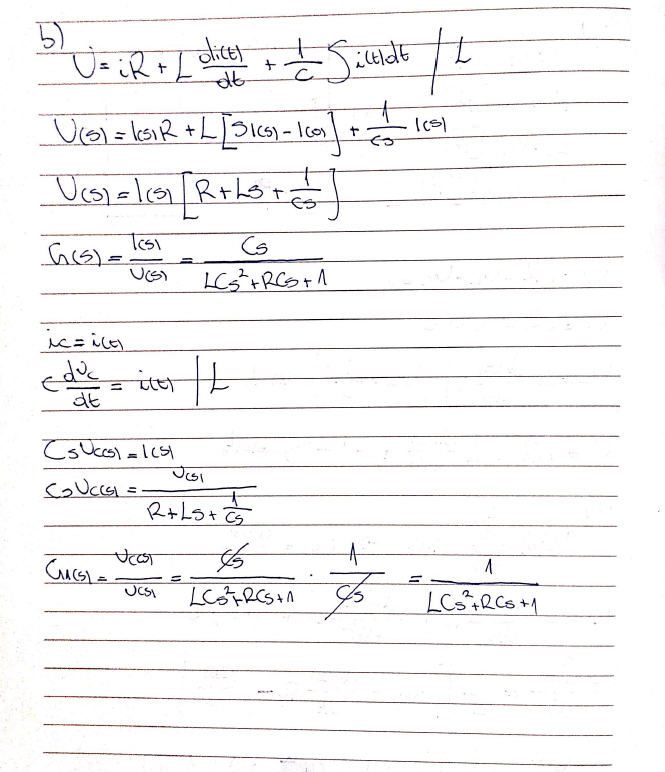 b)
U = iR + L di(t)/dt + 1/C ∫ i(t)dt / L
U(s) = I(s)R + L[SI(s) - I(0)] + 1/Cs I(s)
U(s) = I(s) [R + Ls + 1/Cs]
G(s) = I(s)/U(s) = Cs/(LCs²+RCs+1)
ic = i(t)
C dUc/dt = i(t) | L
CsUc(s) = I(s)
CsUc(s) = U(s)/(R+Ls+1/Cs)
Gu(s) = Uc(s)/U(s) = Cs/(LCs²+RCs+1) · 1/Cs = 1/(LCs²+RCs+1)